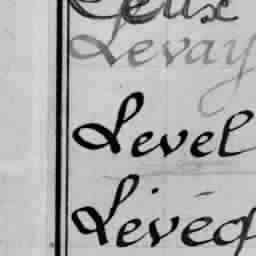 Levay
Level
Lévéq